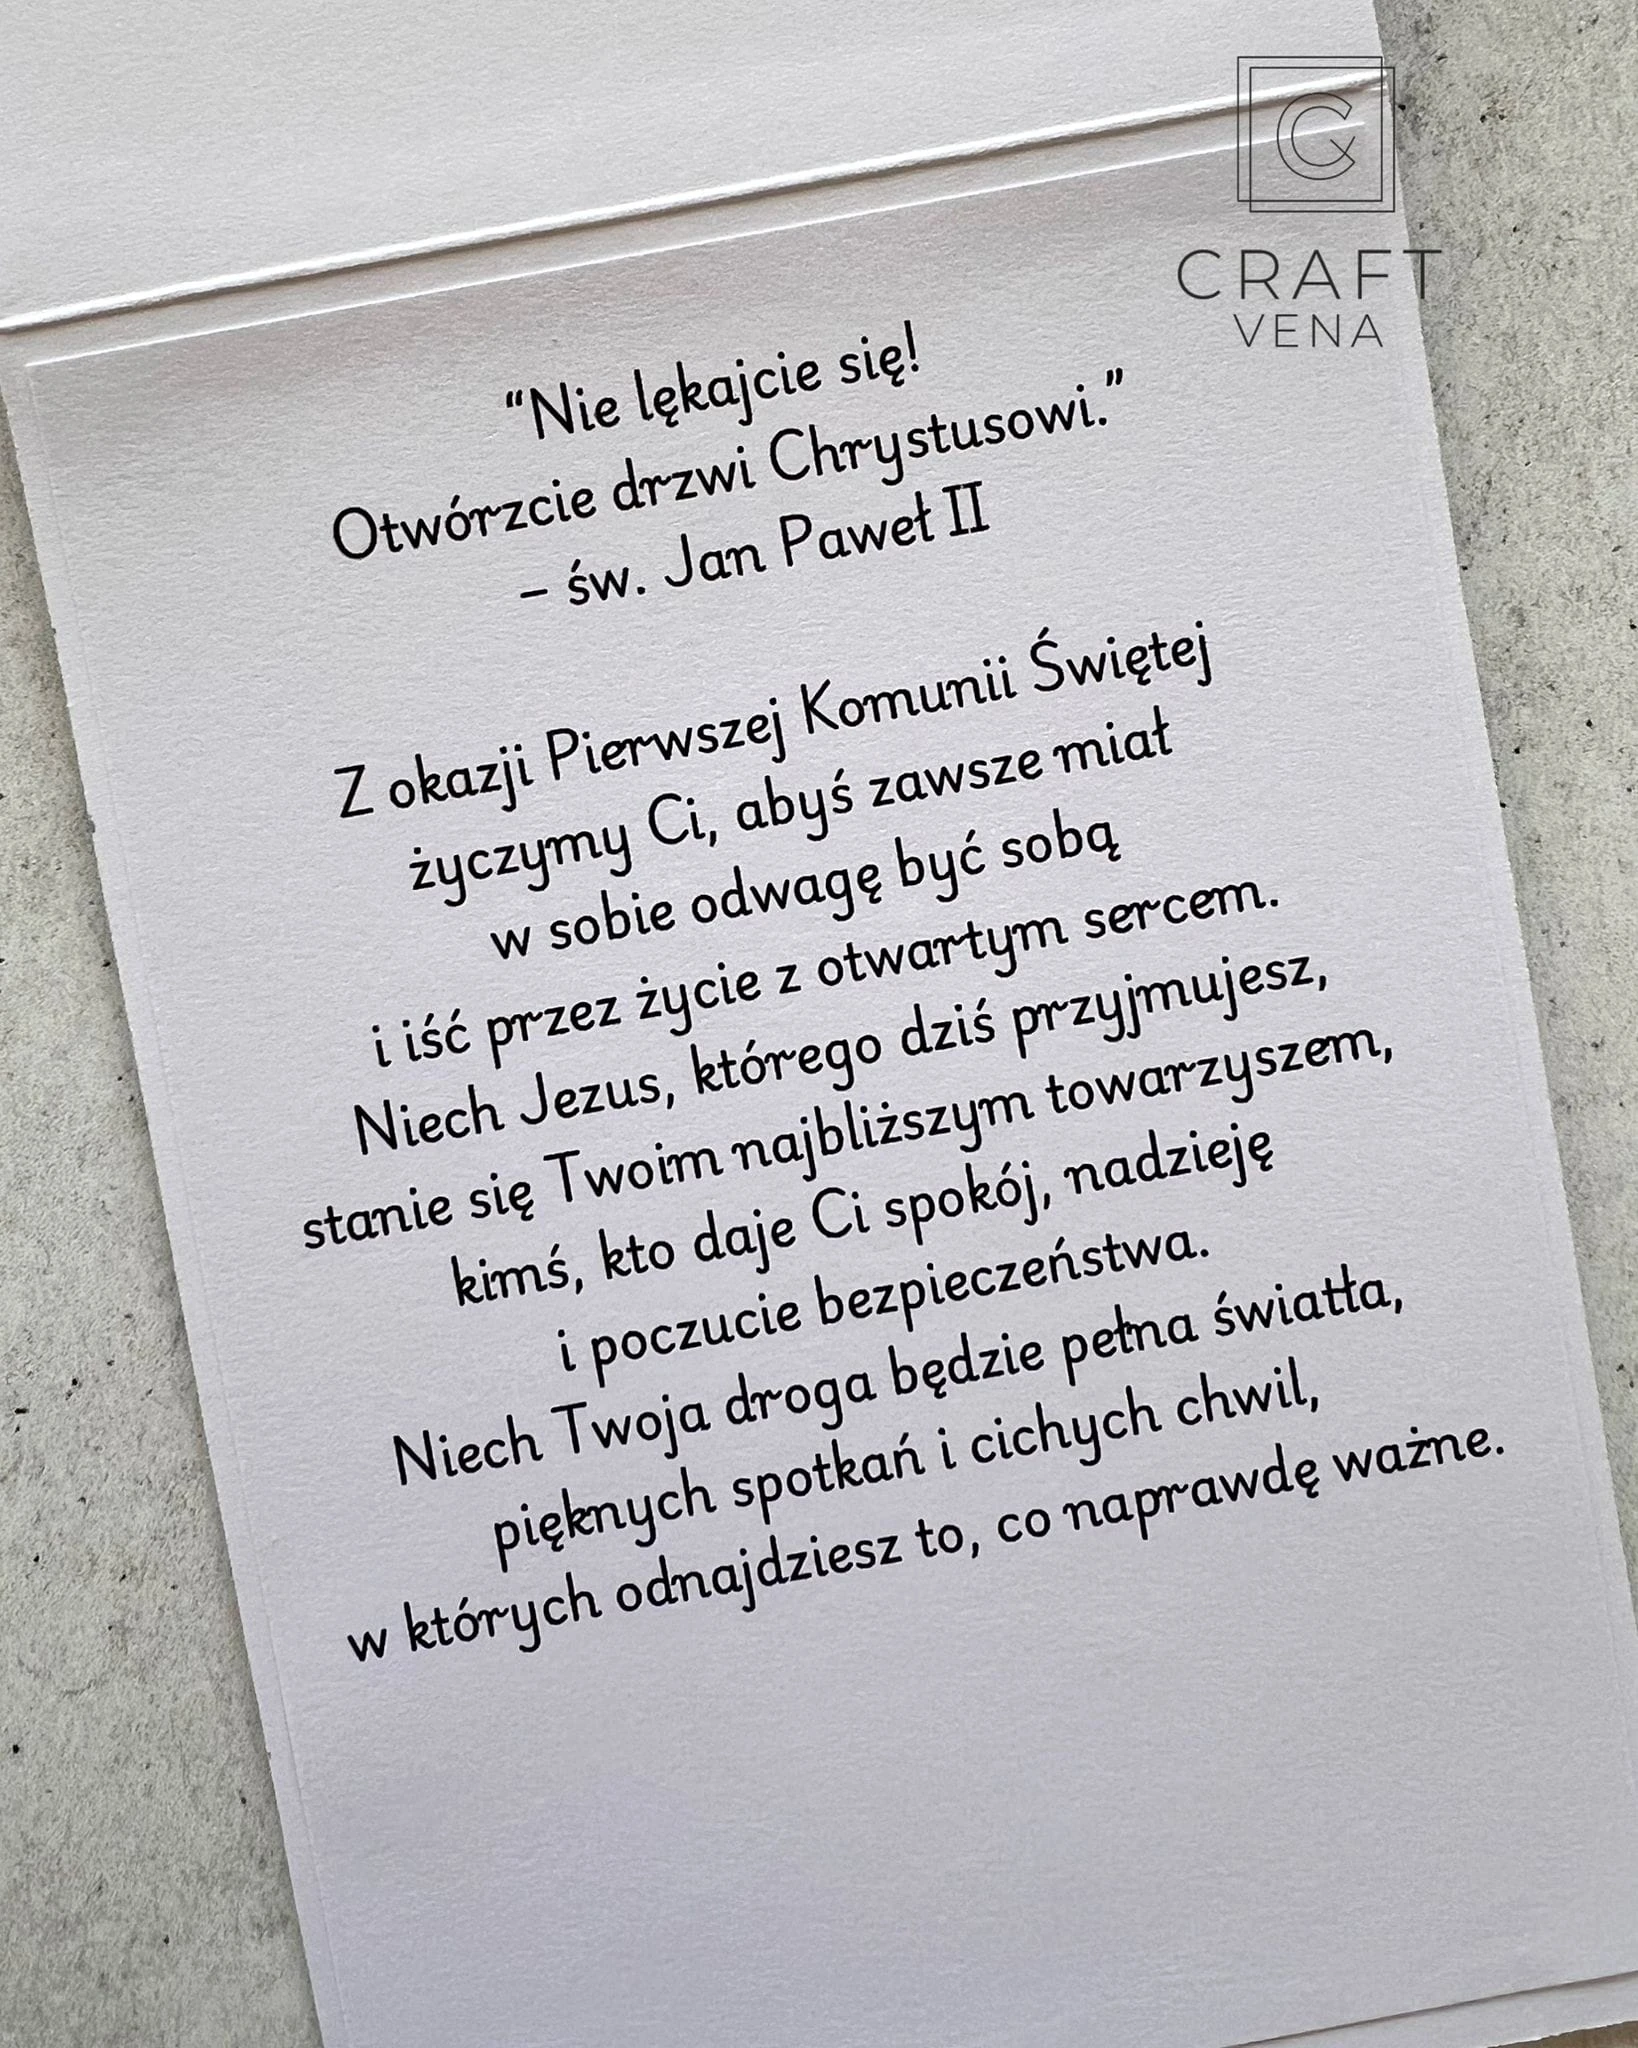 CRAFT
VENA
“Nie lękajcie się!
Otwórzcie drzwi Chrystusowi.”
– św. Jan Paweł II
Z okazji Pierwszej Komunii Świętej
życzymy Ci, abyś zawsze miał
w sobie odwagę być sobą
i iść przez życie z otwartym sercem.
Niech Jezus, którego dziś przyjmujesz,
stanie się Twoim najbliższym towarzyszem,
kimś, kto daje Ci spokój, nadzieję
i poczucie bezpieczeństwa.
Niech Twoja droga będzie pełna światła,
pięknych spotkań i cichych chwil,
w których odnajdziesz to, co naprawdę ważne.